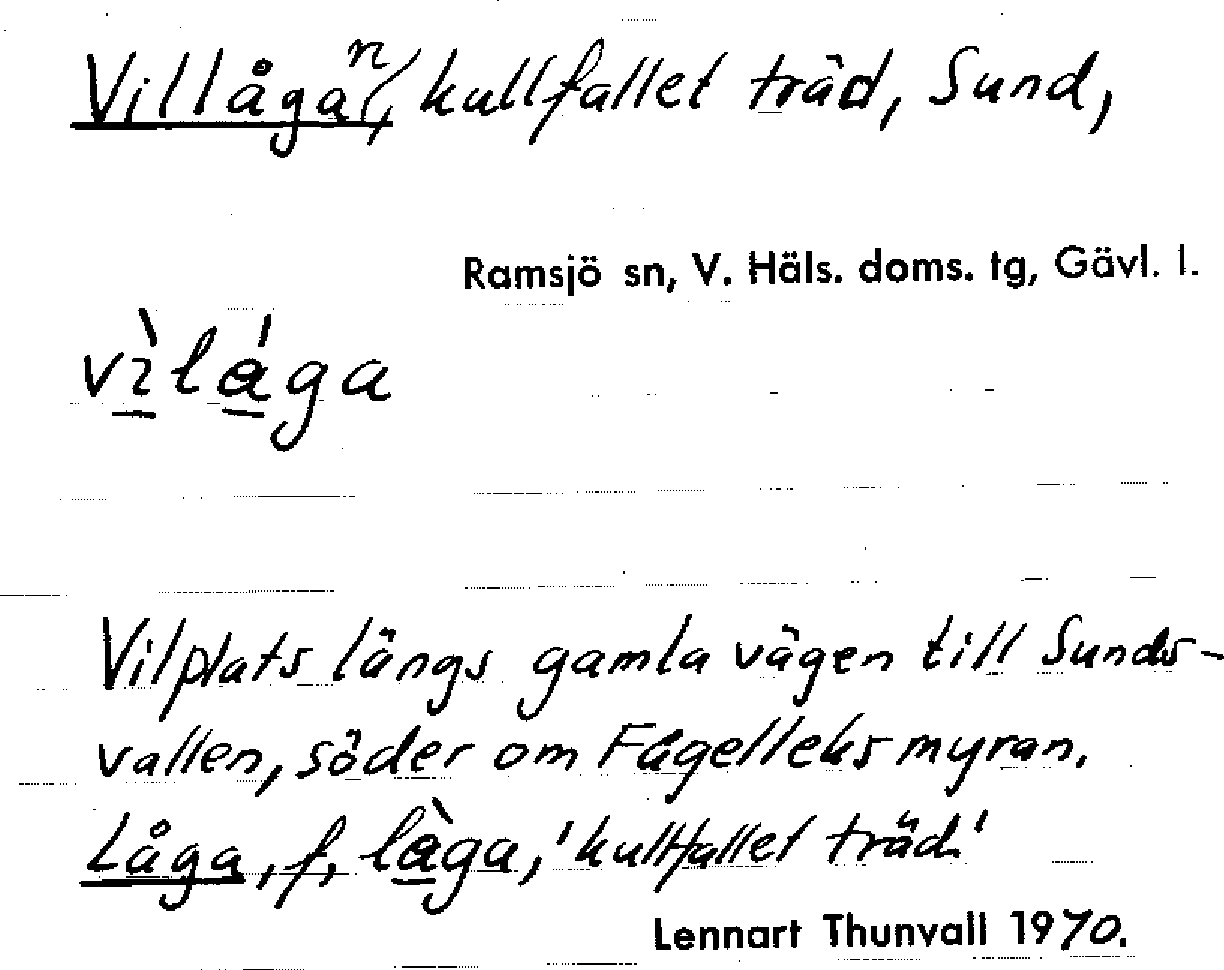 Villåga(n, kullfallet träd, Sund,
Ramsjö sn, V. Häls. doms. tg, Gävl. l.
vìlága
Vilplats längs gamla vägen till Sunds-
vallen, söder om Fågelleksmyran.
Låga, f, làga, 'kullfallet träd.'
Lennart Thunvall 1970.